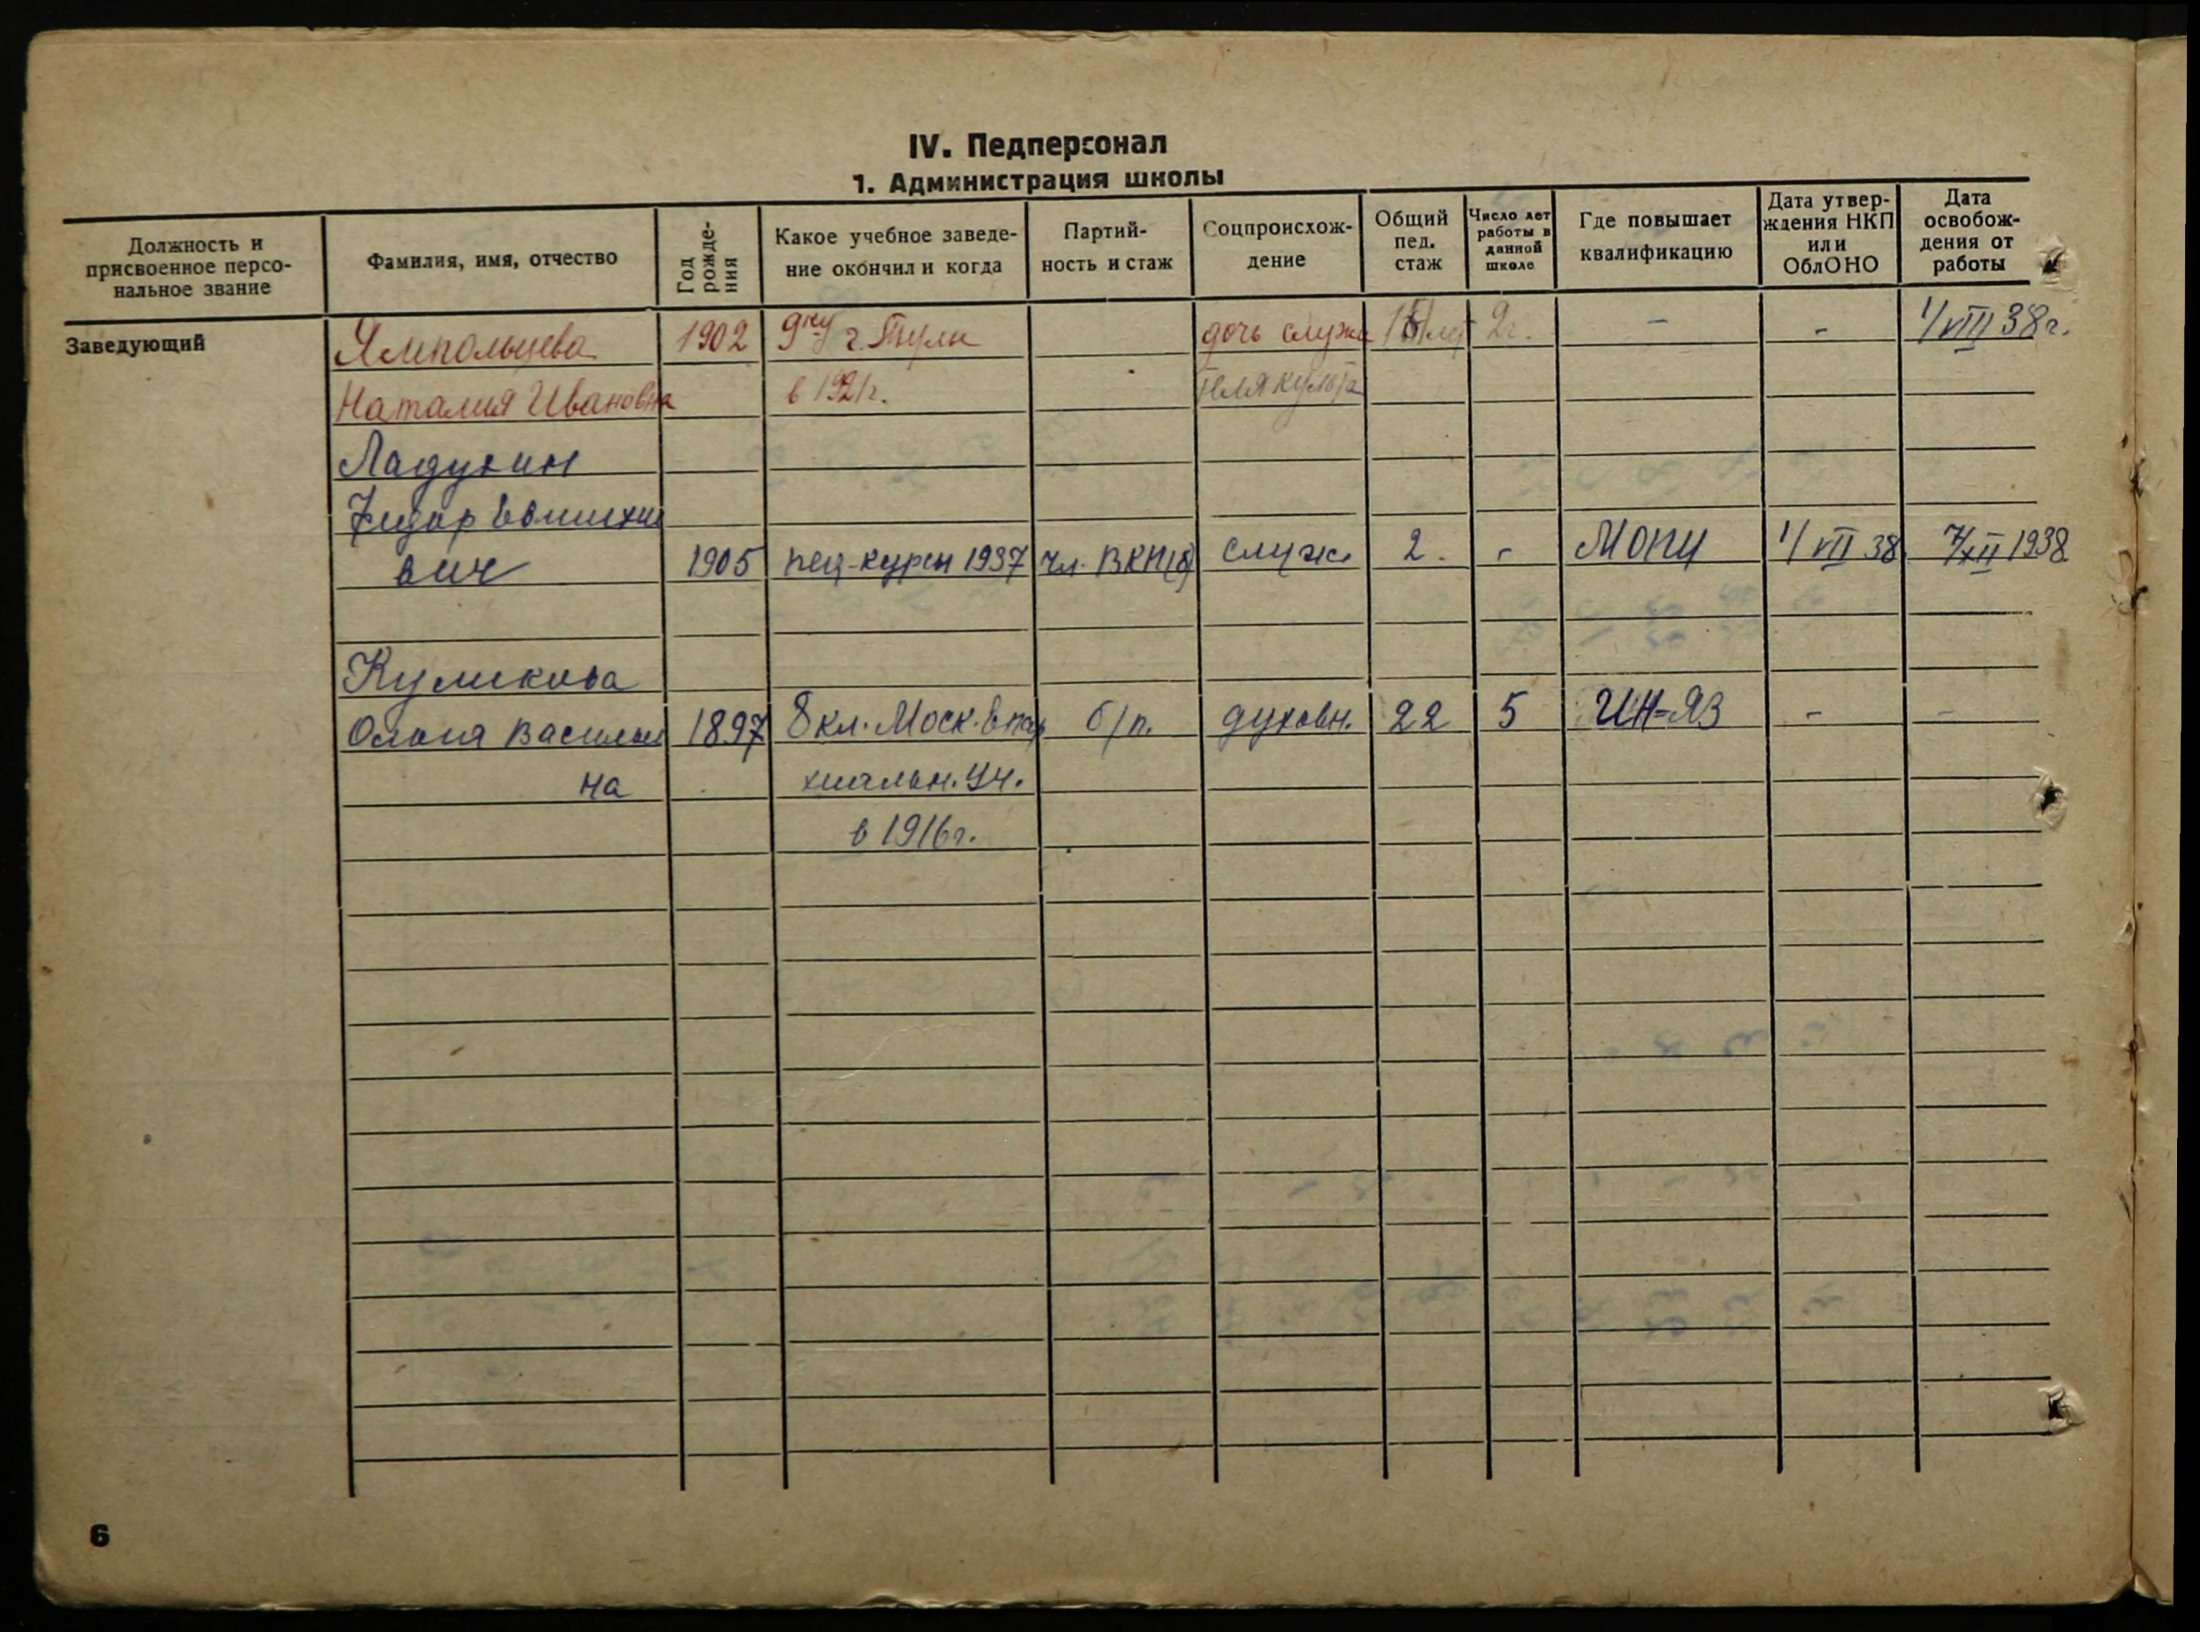 IV. Педперсонал
1. Администрация школы
Должность и присвоенное персо-нальное звание
Фамилия, имя, отчество
Год рожде-ния
Какое учебное заведе-ние окончил и когда
Партий-ность и стаж
Соцпроисхож-дение
Общий пед. стаж
Число лет работы в данной школе
Где повышает квалификацию
Дата утвер-ждения НКП или ОблОНО
Дата освобож-дения от работы
Заведующий
Ямпольцева 1902 г. Тулы дочь служи 2г. - - 1/VIII 38г.
Наталия Ивановна в 1921г. теля культа
Ладухин
вич 1905 пед-курсы 1937 чл. ВКП(б) служ. 2. - МОПИ 1/VII 38 7/XII 1938
Куликова
Ольга Василье 1897 8 кл. Моск. Епар б/п. духовн. 22 5 ИН-ЯЗ - -
на хиальн. уч.
в 1916г.
6